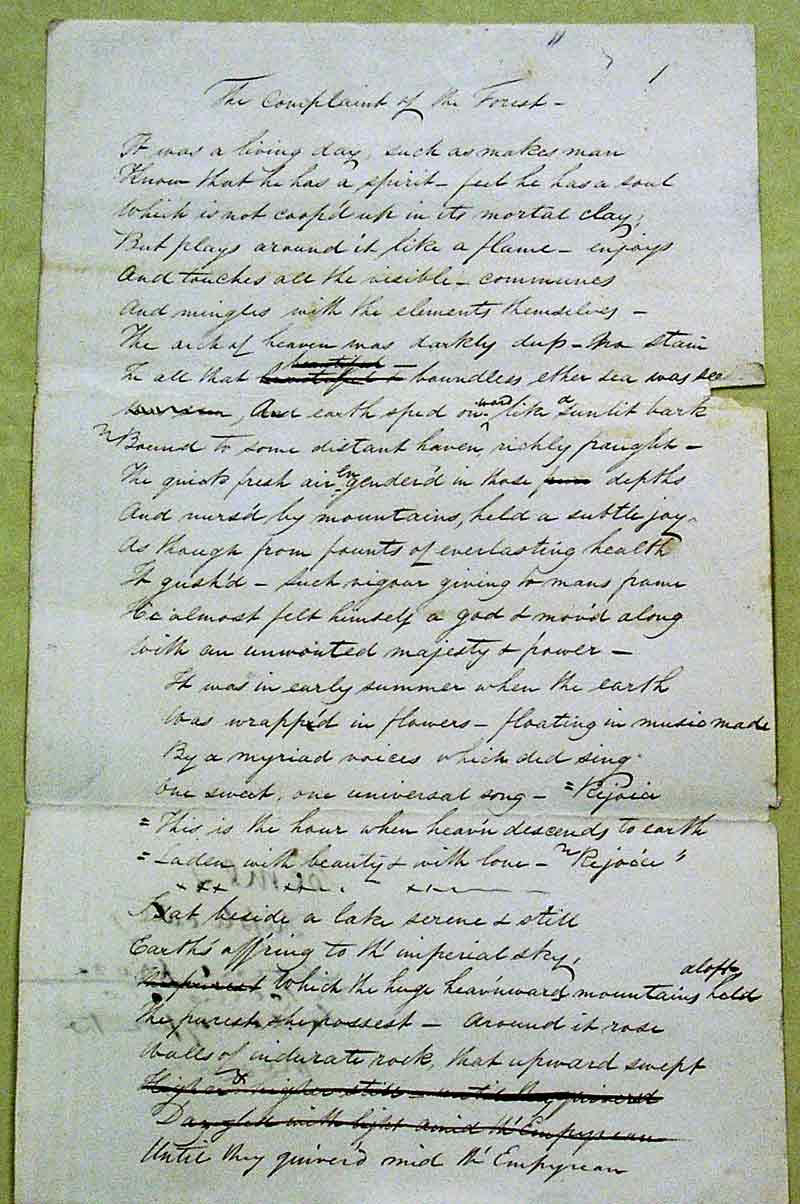 1
The Complaint of the Forest –
It was a living day, such as makes man
Know that he has a spirit – feel he has a soul
Which is not coop'd up in its mortal clay;
But plays around it like a flame – enjoys
And touches all the visible – communes
And mingles with the elements themselves –
The arch of heaven was darkly deep – No stain
In all that beautiful boundless ether sea was see
And earth sped onward like a sunlit bark
Bound to some distant haven, richly fraught –
The quick fresh air engender'd in those pure depths
And nurs'd by mountains, held a subtle joy
As though from founts of everlasting health
It gush'd – such vigour giving to mans frame
He almost felt himself a god & mov'd along
With an unwonted majesty & power –
It was in early summer when the earth
Was wrapp'd in flowers – floating in music made
By a myriad voices which did sing
One sweet, one universal song – "Rejoice
"This is the hour when heav'n descends to earth
"Laden with beauty & with love – "Rejoice"
I sat beside a lake serene & still
Earth's off'ring to th' imperial sky,
The purest Which the huge heav'nward mountains aloft held
The purest she possest – Around it rose
Walls of indurate rock, that upward swept
Higher & higher still – until they quiverd
Dazzled with light amid th' Empyrean
Until they quiver'd mid th' Empyrean